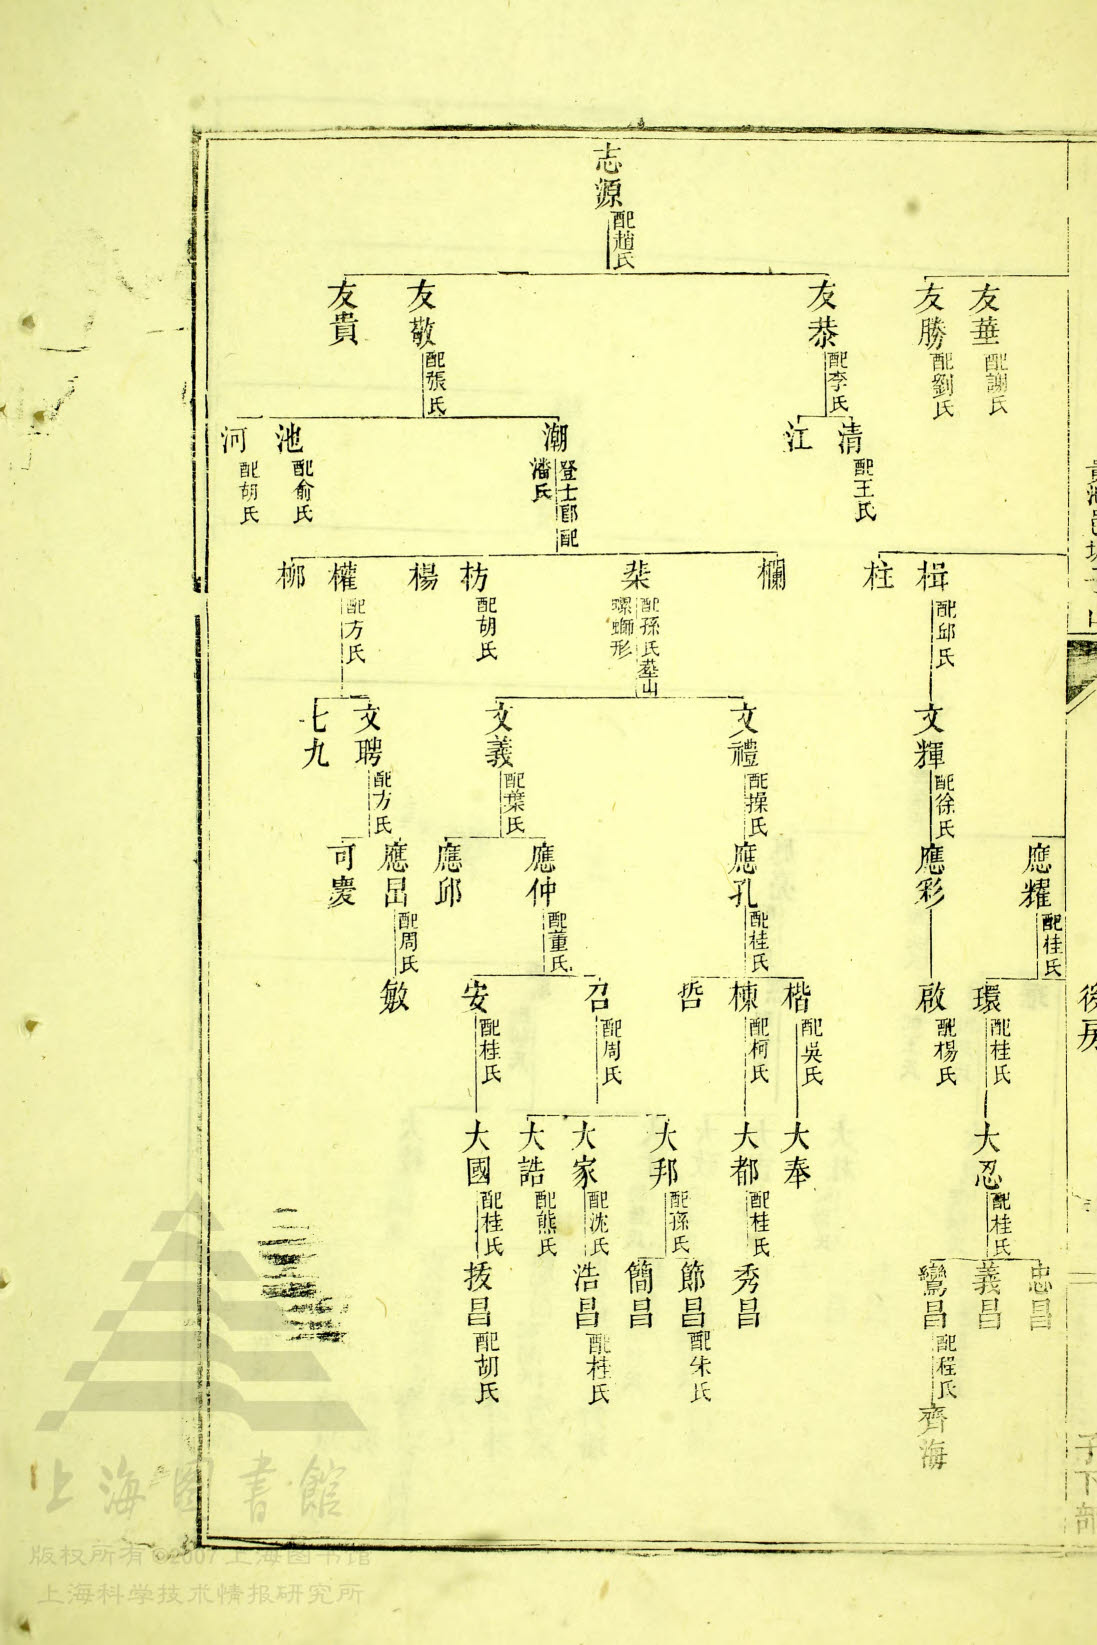 志源 配趙氏
友華 配謝氏
友勝 配劉氏
友恭 配李氏
友敬 配張氏
友貴
清 配王氏
江
潮 登士郎配潘氏
池 配俞氏
河 配胡氏
楫 配邱氏
柱
欄
棐 配孫氏塟山螺螄形
枋 配胡氏
楊
權 配方氏
柳
文輝 配徐氏
文禮 配操氏
文義 配葉氏
文聘 配方氏
七九
應耀 配桂氏
應彩
應孔 配桂氏
應仲 配董氏
應邱
應昌 配周氏
可慶
環 配桂氏
啟 配楊氏
楷 配吳氏
棟 配柯氏
哲
召 配周氏
安 配桂氏
敏
大忍 配桂氏
大奉
大都 配桂氏
大邦 配孫氏
大家 配沈氏
大誥 配熊氏
大國 配桂氏
忠昌
義昌
鸞昌 配程氏
秀昌
節昌 配朱氏
簡昌
浩昌 配桂氏
拔昌 配胡氏
齊海
子下部
上海图書館
版权所有©2007上海图书馆
上海科学技术情报研究所